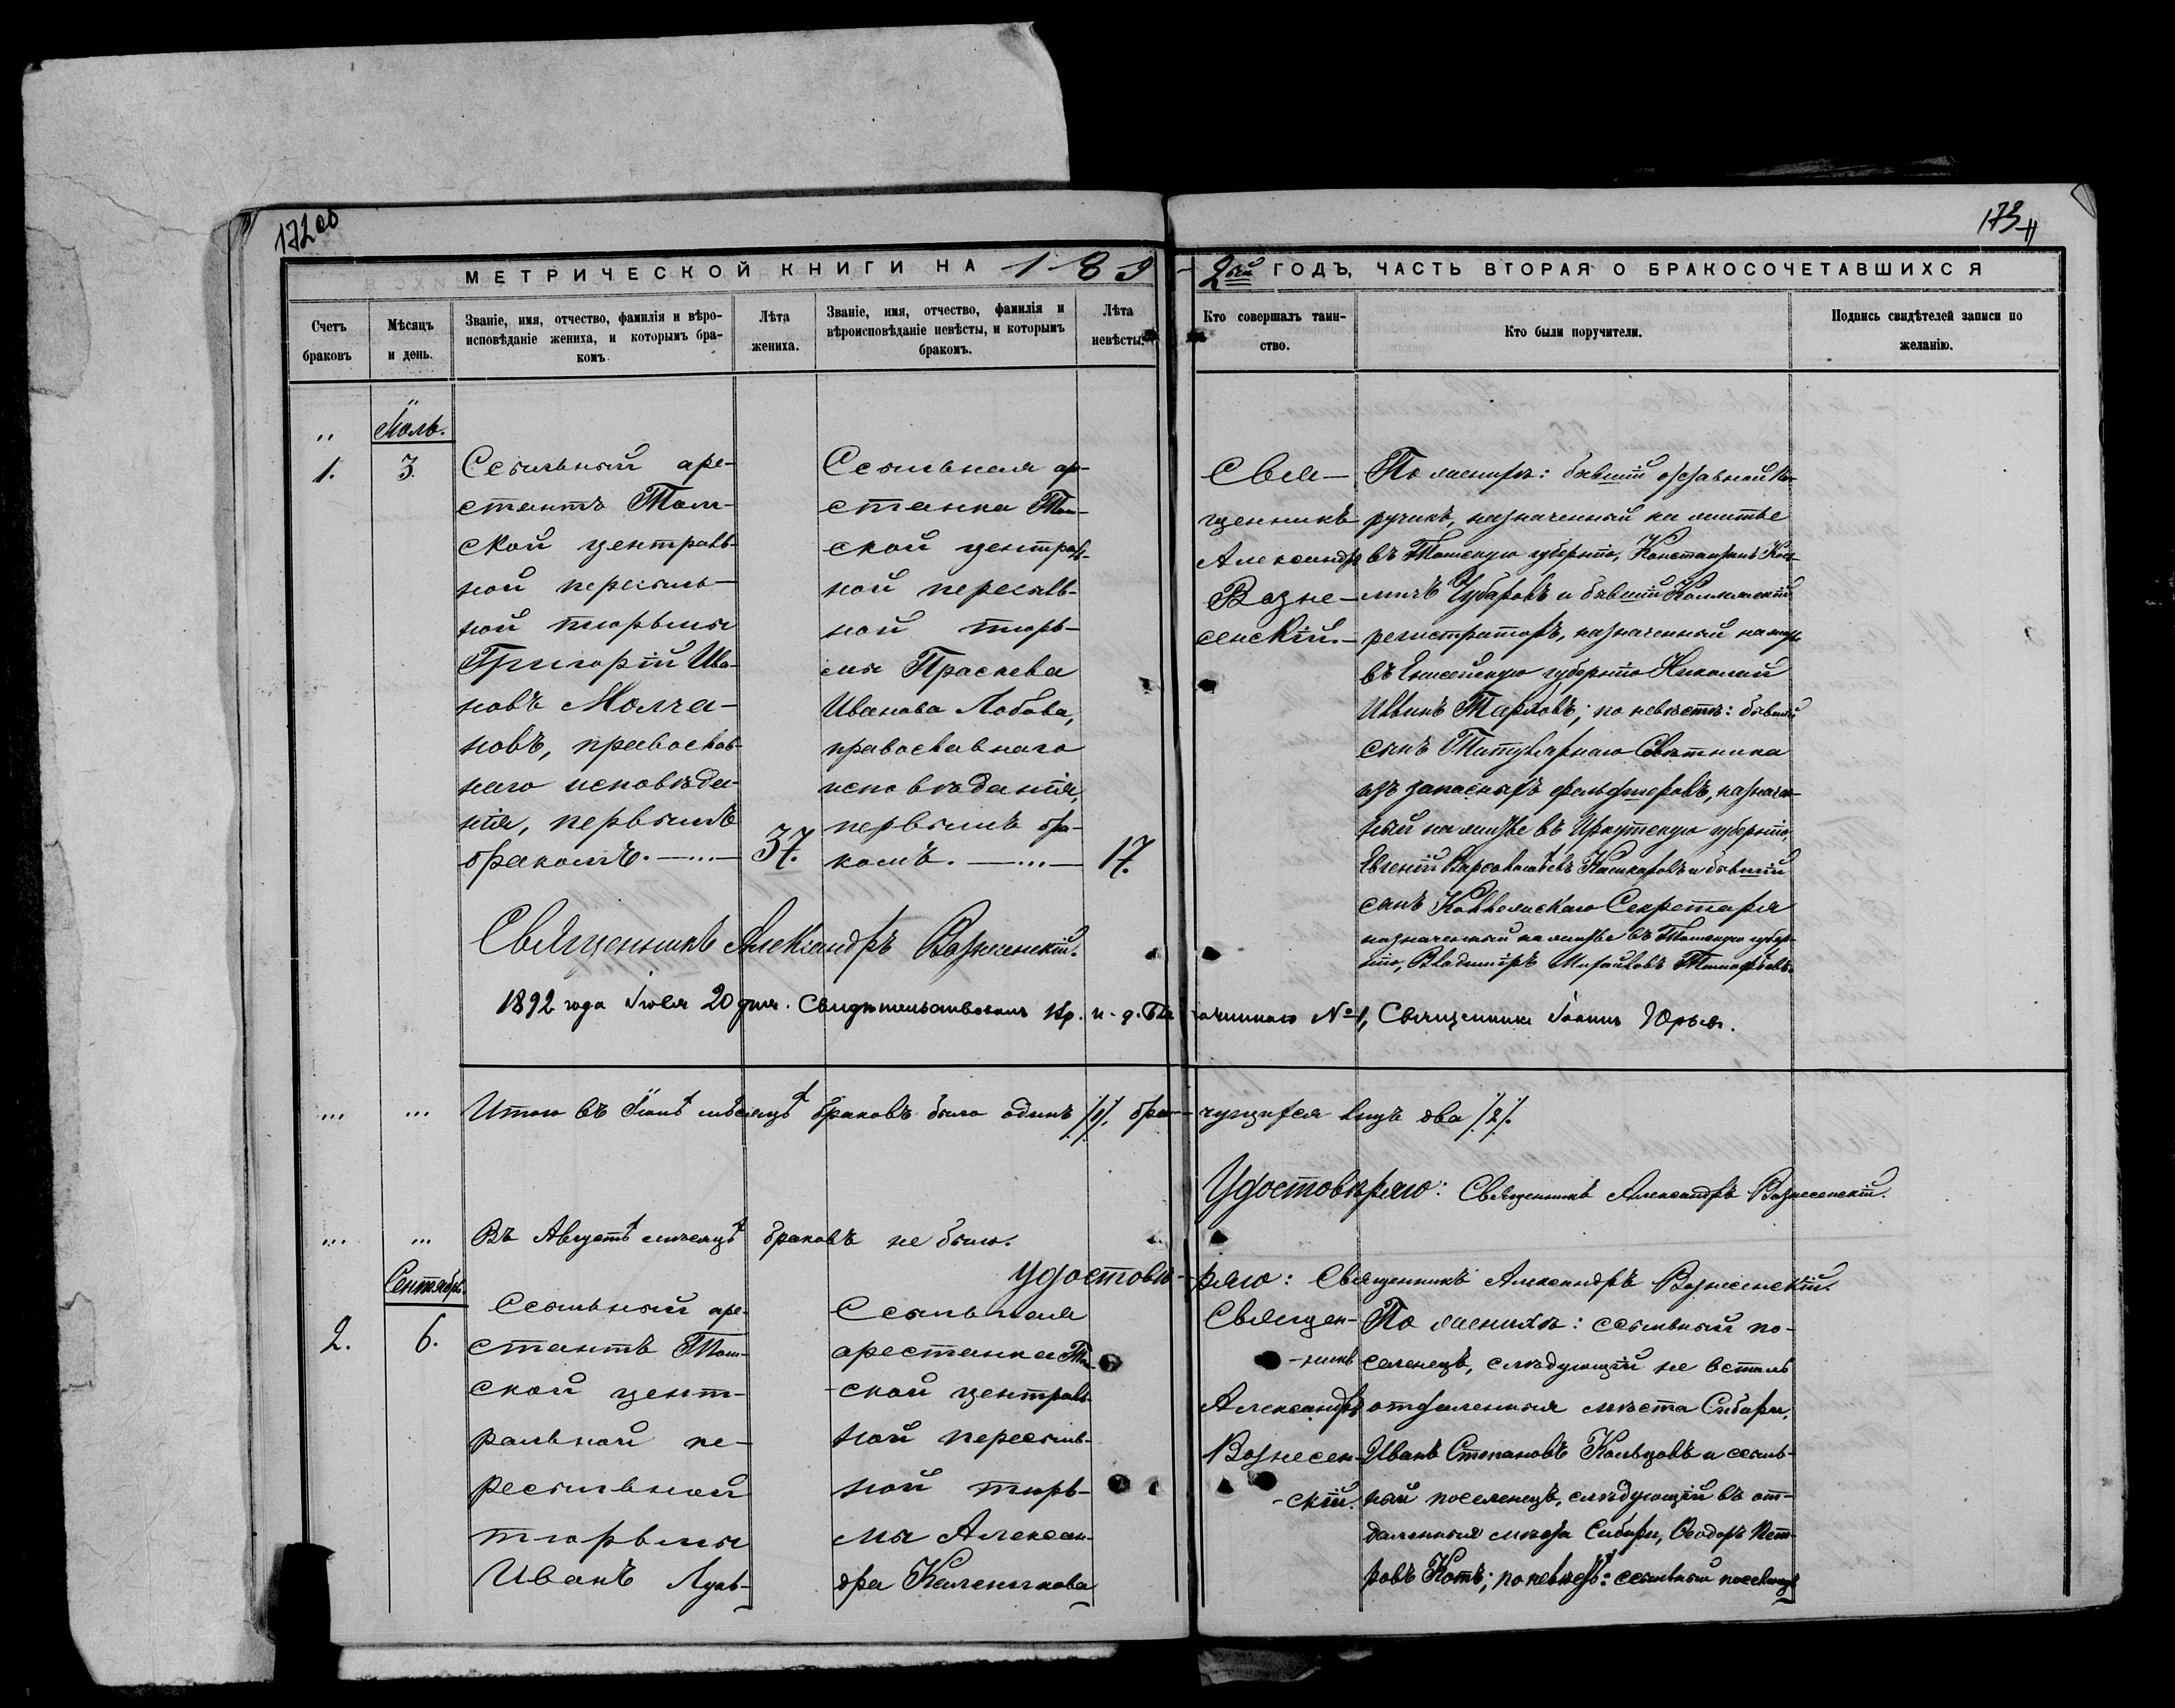 172об
173
МЕТРИЧЕСКОЙ КНИГИ НА 189
2ый ГОДЪ, ЧАСТЬ ВТОРАЯ О БРАКОСОЧЕТАВШИХСЯ
Счетъ
браковъ
Мѣсяцъ
и день.
Званіе, имя, отчество, фамилія и вѣро-
исповѣданіе жениха, и которымъ бра-
комъ.
Лѣта
жениха.
Званіе, имя, отчество, фамилія и
вѣроисповѣданіе невѣсты, и которымъ
бракомъ.
Лѣта
невѣсты.
Кто совершалъ таин-
ство.
Кто были поручители.
Подпись свидѣтелей записи по
желанію.
Іюль.
1.
3.
Ссыльный аре-
стантъ Том-
ской централь-
ной пересыль-
ной тюрьмы
Григорій Ива-
новъ Молча-
новъ, православ-
наго исповѣда-
нія, первымъ
бракомъ.
37.
Ссыльная ар-
станка Том-
ской централь-
ной пересыль-
ной тюрь-
мы Праскева
Иванова Лобова,
православнаго
исповѣданія,
первымъ бра-
комъ.
17.
Свя-
щенникъ
Александръ
Возне-
сенскій.
По женихѣ: бывшій отставной по-
ручикъ, назначенный на житье
въ Томскую губернію, Константинъ Кось-
мичъ Чубаровъ и бывшій Коллежскій
регистраторъ, назначенный на житье
въ Енисейскую губернію Николай
Ильинъ Тарховъ; по невѣстѣ: бывшій
сынъ Титулярнаго Совѣтника
изъ запасныхъ фельдшеровъ, назначен-
ный на житье въ Иркутскую губернію,
Евгеній Кашкаровъ и бывшій
сынъ Коллежскаго Секретаря
назначенный на житье въ Томскую губер-
нію, Владиміръ Михайловъ Тимофѣевъ.
Священникъ Александръ Вознесенскій.
1892 года Іюля 20 дня. Свидѣтельствовалъ и. д. Благочиннаго №1, Священникъ Іоаннъ Юрьевъ.
Итого въ Іюлѣ мѣсяцѣ браковъ было одинъ /1/, брачущихся лицъ два /2/.
Удостовѣряю: Священникъ Александръ Вознесенскій.
Въ Августѣ мѣсяцѣ браковъ не было.
Удостовѣряю: Священникъ Александръ Вознесенскій.
Сентябрь.
2.
6.
Ссыльный аре-
стантъ Том-
ской цент-
ральной пе-
ресыльной
тюрьмы
Иванъ Лукь-
Ссыльная
арестанка Том-
ской централь-
ной пересыль-
ной тюрь-
мы Алексан-
дра Каленикова
Священ-
-никъ
Александръ
Вознесен-
-скій.
По женихѣ: ссыльный по-
селенецъ, слѣдующій не въ столь
отдаленныя мѣста Сибири,
Иванъ Степановъ Кольцовъ и ссыль-
ный поселенецъ, слѣдующій въ от-
даленныя мѣста Сибири, Ѳеодоръ Пет-
ровъ Котъ; по невѣстѣ: ссыльный поселенецъ